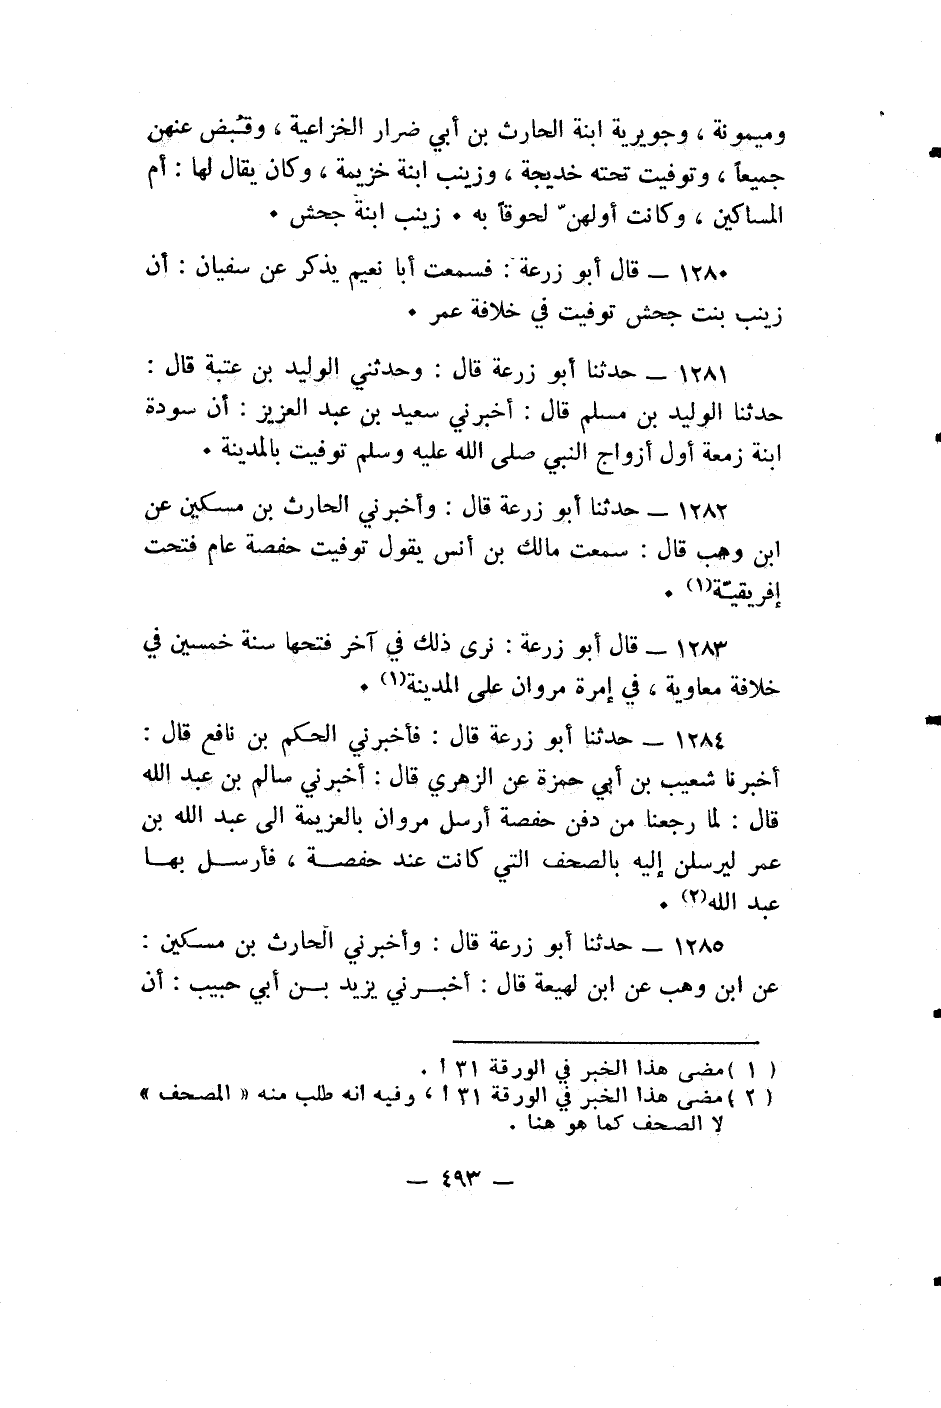 وميمونة ، وجويرية ابنة الحارث بن أبي ضرار الخزاعية ، وقُبض عنهن
جميعاً ، وتوفيت تحته خديجة ، وزينب ابنة خزيمة ، وكان يقال لها : أم
المساكين ، وكانت أولهنّ لحوقاً به . زينب ابنة جحش .
١٢٨٠ ــ قال أبو زرعة : فسمعت أبا نعيم يذكر عن سفيان : أن
زينب بنت جحش توفيت في خلافة عمر .
١٢٨١ ــ حدثنا أبو زرعة قال : وحدثني الوليد بن عتبة قال :
حدثنا الوليد بن مسلم قال : أخبرني سعيد بن عبد العزيز : أن سودة
ابنة زمعة أول أزواج النبي صلى الله عليه وسلم توفيت بالمدينة .
١٢٨٢ ــ حدثنا أبو زرعة قال : وأخبرني الحارث بن مسكين عن
ابن وهب قال : سمعت مالك بن أنس يقول توفيت حفصة عام فتحت
إفريقيّة(١) .
١٢٨٣ ــ قال أبو زرعة : نرى ذلك في آخر فتحها سنة خمسين في
خلافة معاوية ، في إمرة مروان على المدينة(١) .
١٢٨٤ ــ حدثنا أبو زرعة قال : فأخبرني الحكم بن نافع قال :
أخبرنا شعيب بن أبي حمزة عن الزهري قال : أخبرني سالم بن عبد الله
قال : لما رجعنا من دفن حفصة أرسل مروان بالعزيمة الى عبد الله بن
عمر ليرسلن إليه بالصحف التي كانت عند حفصــة ، فأرســل بهــا
عبد الله(٢) .
١٢٨٥ ــ حدثنا أبو زرعة قال : وأخبرني الحارث بن مسكين :
عن ابن وهب عن ابن لهيعة قال : أخبــرني يزيد بــن أبي حبيب : أن
( ١ ) مضى هذا الخبر في الورقة ٣١ أ .
( ٢ ) مضى هذا الخبر في الورقة ٣١ أ ، وفيه انه طلب منه « المصحف »
لا الصحف كما هو هنا .
ــ ٤٩٣ ــ